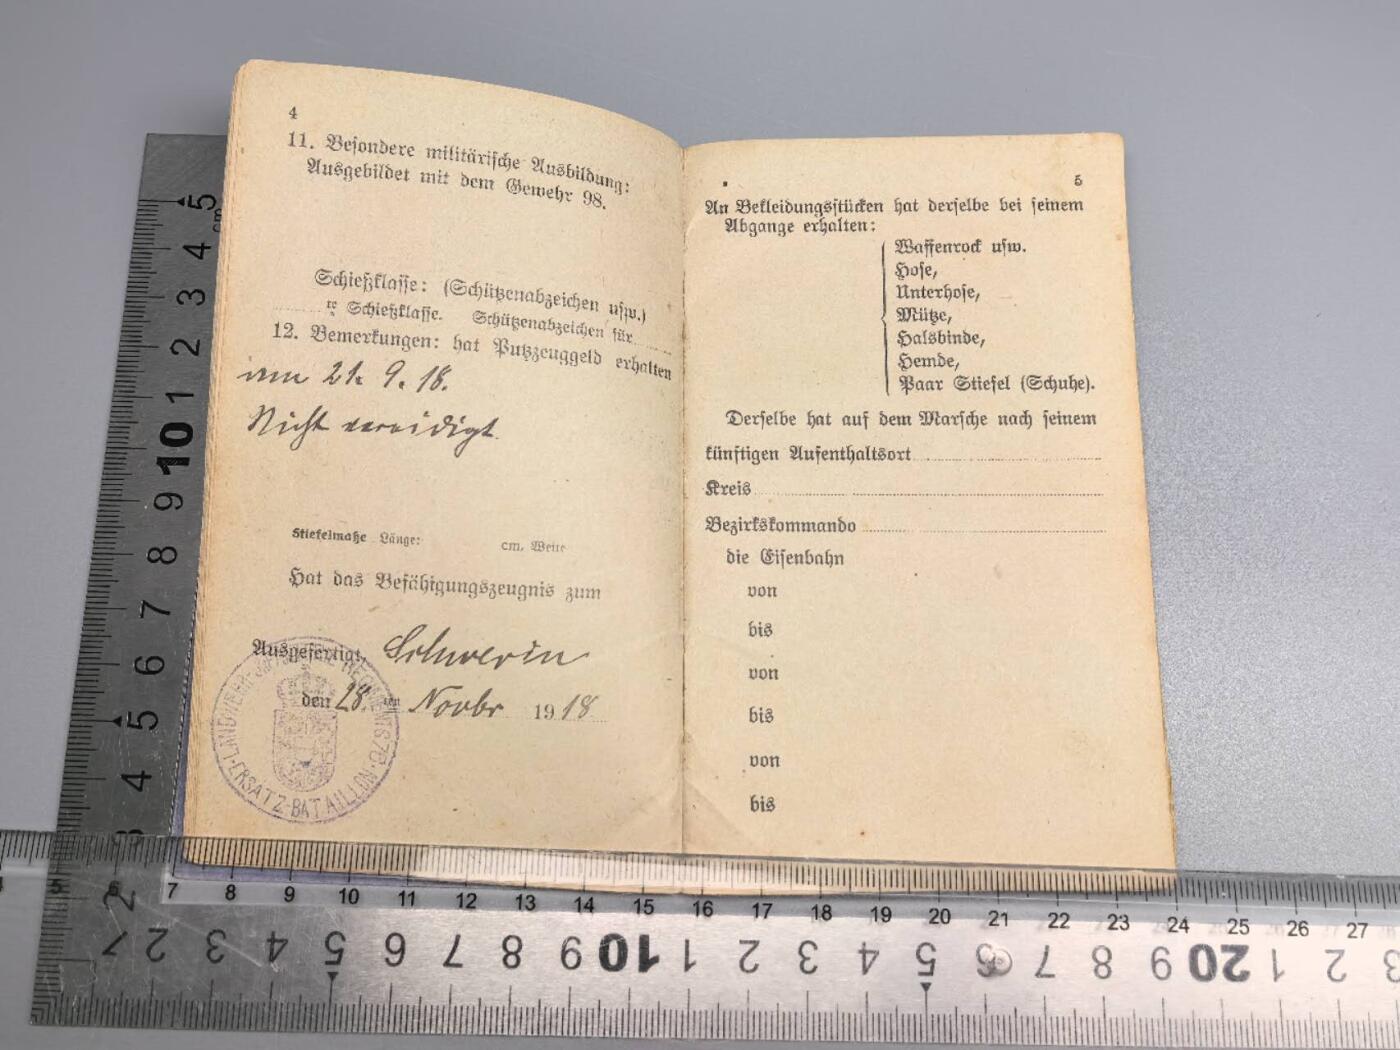 4
11. Besondere militärische Ausbildung:
Ausgebildet mit dem Gewehr 98.
Schießklasse: (Schützenabzeichen usw.)
te Schießklasse. Schützenabzeichen für
12. Bemerkungen: hat Putzzeuggeld erhalten
am 21. 9. 18.
Nicht vereidigt.
Stiefelmaße Länge: cm, Weite
Hat das Befähigungszeugnis zum
Ausgefertigt, Schwerin
den 28. ten Novbr 1918
LANDWEHR-INFANTERIE-REGIMENTS 76
ERSATZ-BATAILLON
5
An Bekleidungsstücken hat derselbe bei seinem
Abgange erhalten:
Waffenrock usw.
Hose,
Unterhose,
Mütze,
Halsbinde,
Hemde,
Paar Stiefel (Schuhe).
Derselbe hat auf dem Marsche nach seinem
künftigen Aufenthaltsort
Kreis
Bezirkskommando
die Eisenbahn
von
bis
von
bis
von
bis
5 4 3 2 1 10 9 8 7 6 5 4 3 2
7 8 9 10 11 12 13 14 15 16 17 18 19 20 21 22 23 24 25 26 27
2 3 4 5 6 7 8 9 10 1 2 3 4 5 6 7 8 9 20 1 2 3